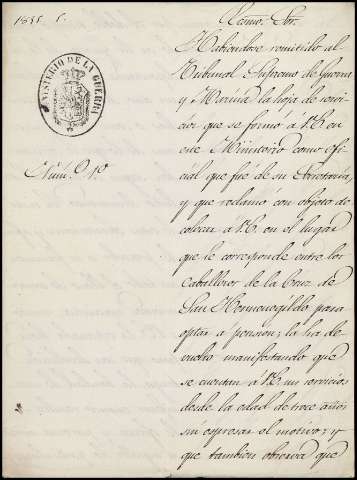 Excmo. Sor.
MINISTERIO DE LA GUERRA
Núm.º 1º
Habiéndose remitido al
Tribunal Supremo de Guerra
y Marina la hoja de servi-
cios que se formó á V.E. en
este Ministerio como ofi-
cial que fue de su Secretaría,
y que reclamó con objeto de
colocar á V.E. en el lugar
que le corresponde entre los
Caballeros de la Cruz de
San Hermenegildo para
optar a pension; la ha de-
vuelto manifestando que
se cuentan á V.E. sus servicios
desde la edad de trece años
sin espresar el motivo; y
que tambien observa que